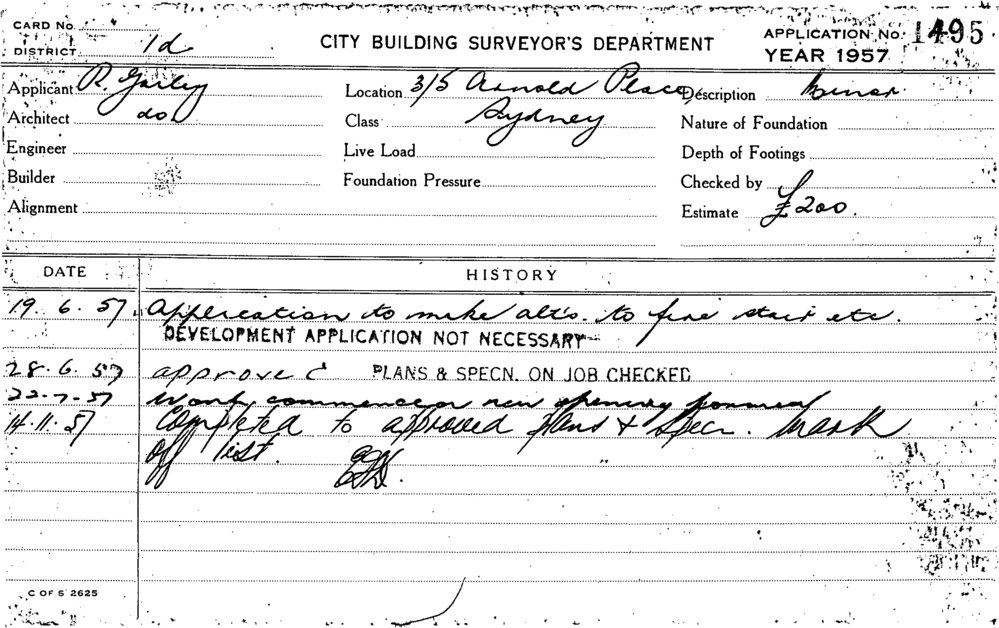 CARD No
DISTRICT 1d
CITY BUILDING SURVEYOR'S DEPARTMENT
APPLICATION No. 1495
YEAR 1957
Applicant R.
Location 3/5 Arnold Place,
Description Minor.
Architect do
Class Sydney
Nature of Foundation
Engineer
Live Load
Depth of Footings
Builder
Foundation Pressure
Checked by
Alignment
Estimate £200.
DATE
HISTORY
19. 6. 57. Application to make alts. to fire stair etc.
DEVELOPMENT APPLICATION NOT NECESSARY
28. 6. 57 approved PLANS & SPECN. ON JOB CHECKED
22-7-57 Work commence new opening formed
14.11.57 Completed to approved plans & specn. Mark
off list.
C OF S 2625